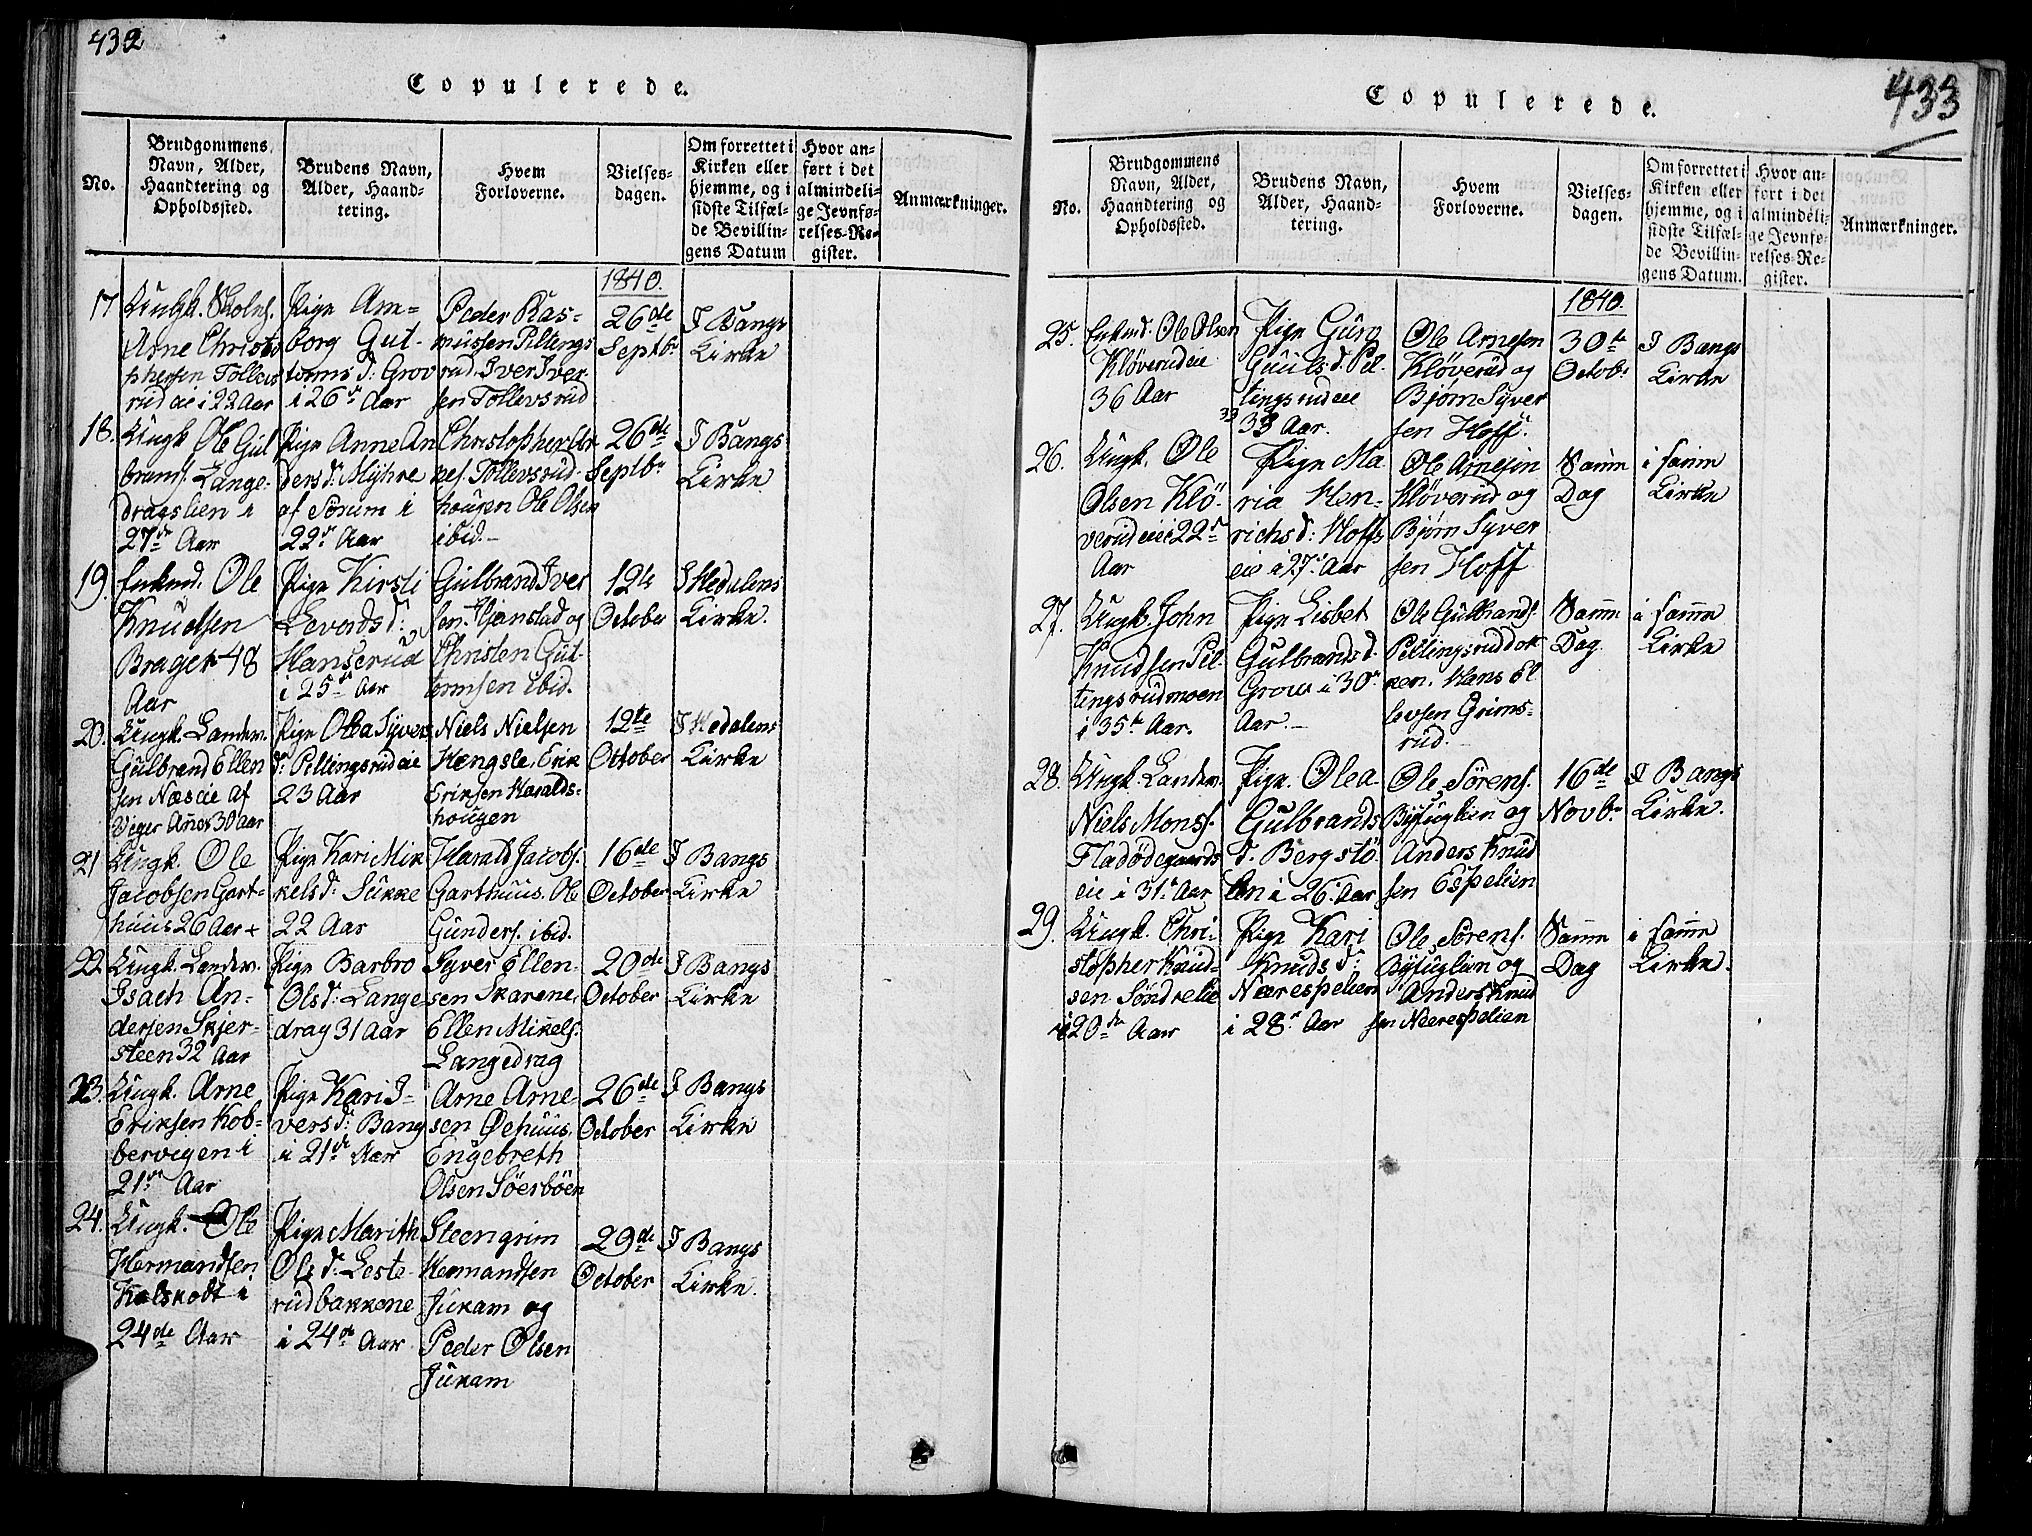 432
Copulerede.
No.
Brudgommens
Navn, Alder,
Haandtering og
Opholdssted.
Brudens Navn,
Alder, Haand-
tering.
Hvem
Forloverne.
Vielses-
dagen.
Om forrettet i
Kirken eller
hjemme, og i
sidste Tilfæl-
de Bevillin-
gens Datum
Hvor an-
ført i det
almindeli-
ge Jevnfø-
relses-Re-
gister.
Anmærkninger.
1840.
17
Ungk. Skolh.
Arne Christo
phersen Tollevs
rud eie i 22 Aar
Pige Am-
borg Gut-
torms d: Grov
i 26de Aar
Peder Ras-
mussen Piltings
rud, Iver Iver-
sen Tollevsrud
26de
Septbr
I Bangs
Kirke
18.
Ungk Ole Gul
brands. Lange-
dragslien i
27de Aar
Pige Anne An
ders d: Myhre
af Sørum i
22de Aar
Christopher Ar
nes. Tollevsrud-
hougen Ole Olsen
ibid.-
26de
Septbr
I Bangs
Kirke
19.
Enkemd. Ole
Knudsen
Brager 48
Aar
Pige Kirsti
Levords d:
Hanserud
i 25de Aar
Gulbrand Iver
sen Hjønstad og
Christen Gut-
tormsen ibid.
12te
October
I Hedalens
Kirke.
20.
Ungk. Landev.
Gulbrand Ellen
sen Næs eie af
Viger Anex 30 Aar
Pige Olea Syvers
d: Piltingsrud eie
23 Aar
Niels Nielsen
Hengsle, Erik
Eriksen Haralds-
hougen
12te
October
I Hedalens
Kirke
21
Ungk. Ole
Jacobsen Gart-
huus 26 Aar +
Pige Kari Mik
kels d: Sukke
22 Aar
Harald Jacobs.
Garthuus. Ole
Gunders. ibid.
16de
October
I Bangs
Kirke
22.
Ungk. Landev.
Isach An-
dersen Skjer-
steen 32 Aar
Pige Barbro
Ols d: Lange
drag 31 Aar
Syver Ellen-
sen Skarene,
Ellen Mikels.
Langedrag
20de
October
I Bangs
Kirke
23.
Ungk. Arne
Eriksen Kob-
bervigen i
21de Aar
Pige Kari I-
vers d: Bang
i 21de Aar
Arne Arne-
sen Øehuus,
Engebreth
Olsen Søerbøen
26de
October
I Bangs
Kirke
24.
Ungk. Ole
Hermandsen
Kalskodt i
24de Aar
Pige Marith
Ols d: Leste-
rudbakkene
i 24de Aar
Steengrim
Hermandsen
Jukam og
Peder Olsen
Jukam
29de
October
I Bangs
Kirke.
433
Copulerede.
No.
Brudgommens
Navn, Alder,
Haandtering og
Opholdssted.
Brudens Navn,
Alder, Haand-
tering.
Hvem
Forloverne.
Vielses-
dagen.
Om forrettet i
Kirken eller
hjemme, og i
sidste Tilfæl-
de Bevillin-
gens Datum.
Hvor an-
ført i det
almindeli-
ge Jevnfø-
relses-Re-
gister.
Anmærkninger.
1840.
25.
Enkemd. Ole Olsen
Kløverud eie
36 Aar
Pige Guro
Guuls d. Pil-
tingsrud eie
33 Aar.
Ole Arnesen
Kløverud og
Bjørn Syver
sen Hoff.
30te
Octobr
I Bangs
Kirke
26.
Ungk. Ole
Olsen Klø-
verud eie i 22de
Aar
Pige Ma
ria Hen-
richs d: Hoffs
eie i 27de Aar
Ole Arnesen
Kløverud og
Bjørn Syver
sen Hoff
Samme
Dag
i samme
Kirke
27.
Ungk. John
Knudsen Pil-
tingsrudmoen
i 35te Aar.
Pige Lisbet
Gulbrands d.
Grov i 30te
Aar.-
Ole Gulbrands.
Piltingsrudda
ken. Hans El
levsen Grims-
rud.
Samme
Dag.
i samme
Kirke
28.
Ungk. Landev.
Niels Mons.
Fladødegaards
eie i 31te Aar
Pige Olea
Gulbrands
d. Bergstø-
len i 26. Aar
Ole Sørens.
Byfuglien og
Anders Knud
sen Espelien
16de
Novbr
I Bangs
Kirke.
29.
Ungk. Chri-
stopher Knud-
sen Søndrelie
i 20de Aar
Pige Kari
Knuds d:
Nærespelien
i 28de Aar
Ole Sørens.
Byfuglien og
Anders Knud
sen Nærespelien
Samme
Dag
i samme
Kirke.